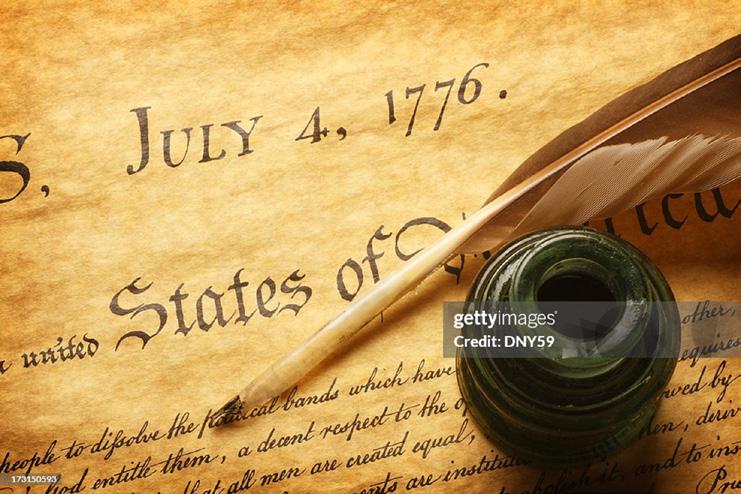 S, JULY 4, 1776.
united States of erica
people to dissolve the political bands which have other,
God entitle them, a decent respect to the requires
that all men are created equal, wed by
ments are institut Men, deriv
to abolish it, and to ins
gettyimages®
Credit: DNY59
713150593